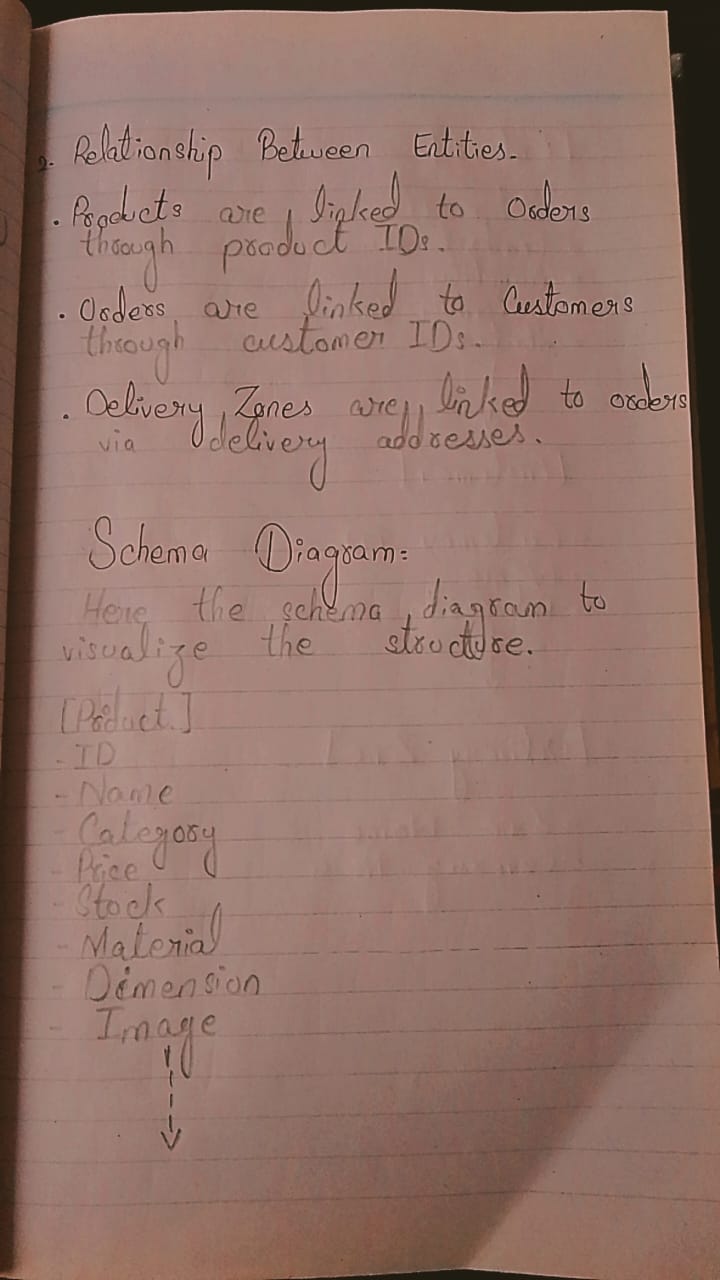 2. Relationship Between Entities.
. Products are linked to Orders
through product IDs.
. Orders are linked to Customers
through customer IDs.
. Delivery Zones are linked to orders
via delivery addresses.
Schema Diagram:
Here the schema diagram to
visualize the structure.
[Product]
- ID
- Name
- Category
- Price
- Stock
- Material
- Dimension
- Image